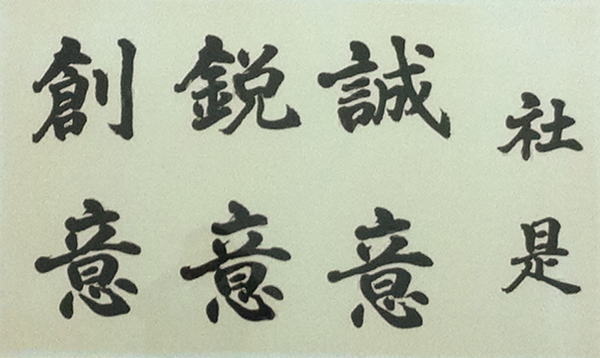 社是
誠意
鋭意
創意